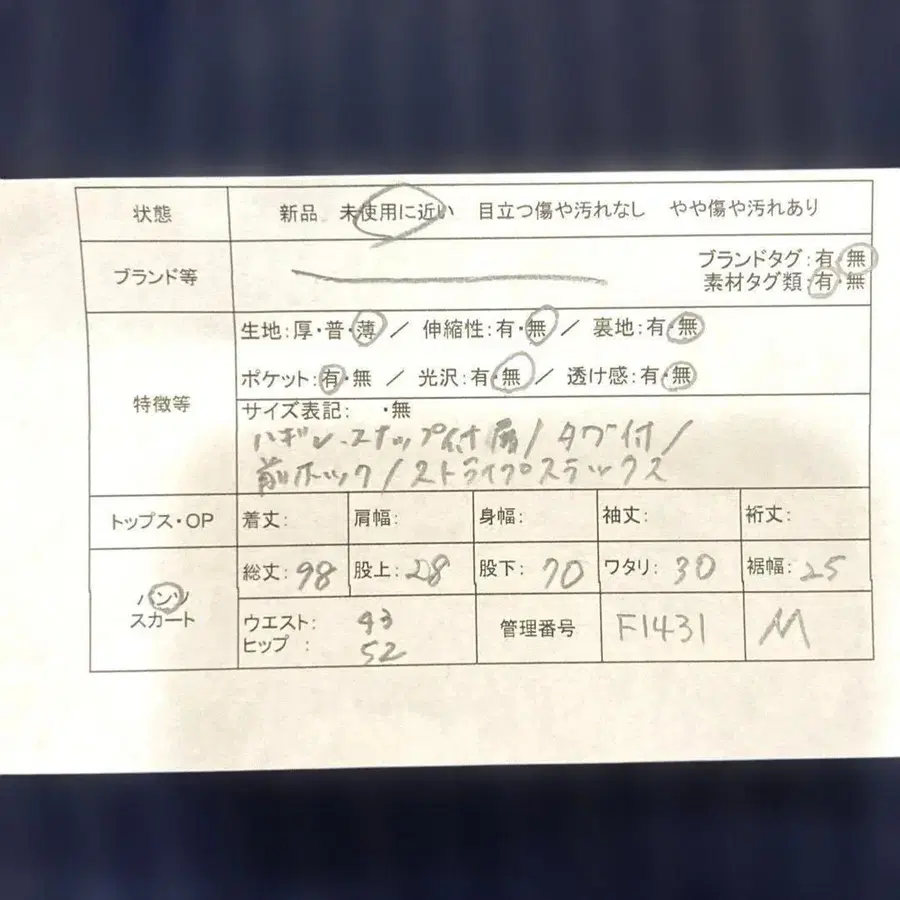 状態 新品 未使用に近い 目立つ傷や汚れなし やや傷や汚れあり
ブランド等 ブランドタグ:有・無
素材タグ類:有・無
特徴等 生地:厚・普・薄 / 伸縮性:有・無 / 裏地:有・無
ポケット:有・無 / 光沢:有・無 / 透け感:有・無
サイズ表記: ・無
ハギレ・スナップ付属/タグ付/
前ホック/ストライプスラックス
トップス・OP 着丈: 肩幅: 身幅: 袖丈: 裄丈:
パンツ 総丈:98 股上:28 股下:70 ワタリ:30 裾幅:25
スカート ウエスト: 43 管理番号 F1431 M
ヒップ : 52